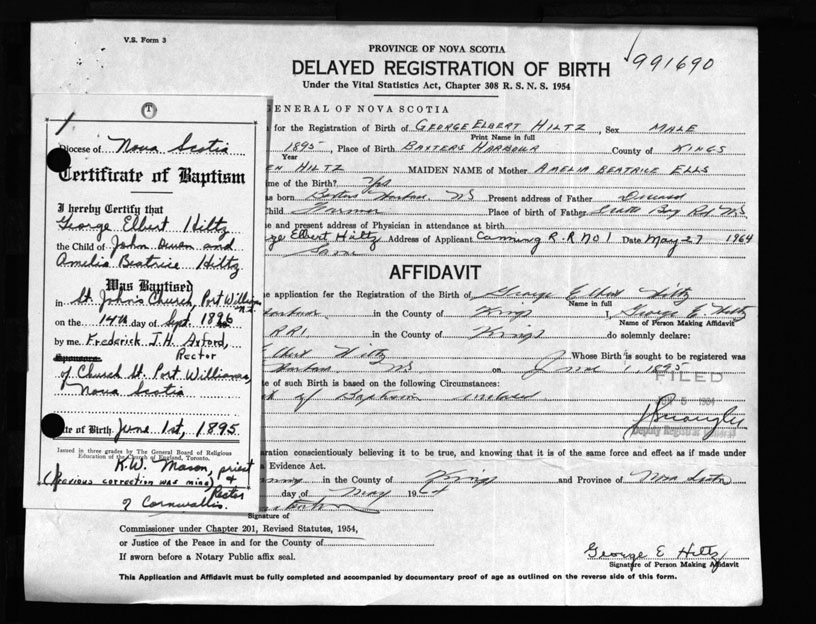 V.S. Form 3
PROVINCE OF NOVA SCOTIA
DELAYED REGISTRATION OF BIRTH
991690
Under the Vital Statistics Act, Chapter 308 R. S. N. S. 1954
GENERAL OF NOVA SCOTIA
for the Registration of Birth of GEORGE ELBERT HILTZ, Sex MALE
Print Name in full
1895, Place of Birth BAXTERS HARBOUR County of KINGS
Year
HILTZ MAIDEN NAME of Mother AMELIA BEATRICE ELLS
me of the Birth? Yes
as born Baxters Harbour NS Present address of Father Deceased
hild Farmer Place of birth of Father
e and present address of Physician in attendance at birth
ge Elbert Hiltz Address of Applicant Canning R.R No 1 Date May 27 1964
Same
AFFIDAVIT
e application for the Registration of the Birth of George Elbert Hiltz
Name in full
in the County of Kings I, George E Hiltz
Name of Person Making Affidavit
RR1 in the County of Kings do solemnly declare:
Elbert Hiltz Whose Birth is sought to be registered was
Harbour NS on June 1, 1895
FILED
e of such Birth is based on the following Circumstances:
of Baptism enclosed
Deputy Registrar
aration conscientiously believing it to be true, and knowing that it is of the same force and effect as if made under
a Evidence Act.
in the County of Kings and Province of Nova Scotia
day of May 19
Signature of
Commissioner under Chapter 201, Revised Statutes, 1954,
or Justice of the Peace in and for the County of
If sworn before a Notary Public affix seal.
George E Hiltz
Signature of Person Making Affidavit
This Application and Affidavit must be fully completed and accompanied by documentary proof of age as outlined on the reverse side of this form.
Diocese of Nova Scotia
Certificate of Baptism
I hereby Certify that
George Elbert Hiltz
the Child of John Owen and
Amelia Beatrice Hiltz
Was Baptised
in St. John's Church, Port Williams N.S.
on the 14th day of Sept. 1896
by me Frederick J.H. Axford,
Rector
Sponsors
of Church St. Port Williams,
Nova Scotia
te of Birth June 1st, 1895
Issued in three grades by The General Board of Religious
Education of the Church of England, Toronto.
K.W. Mason, priest
(Previous correction was mine) &
Rector
of Cornwallis.